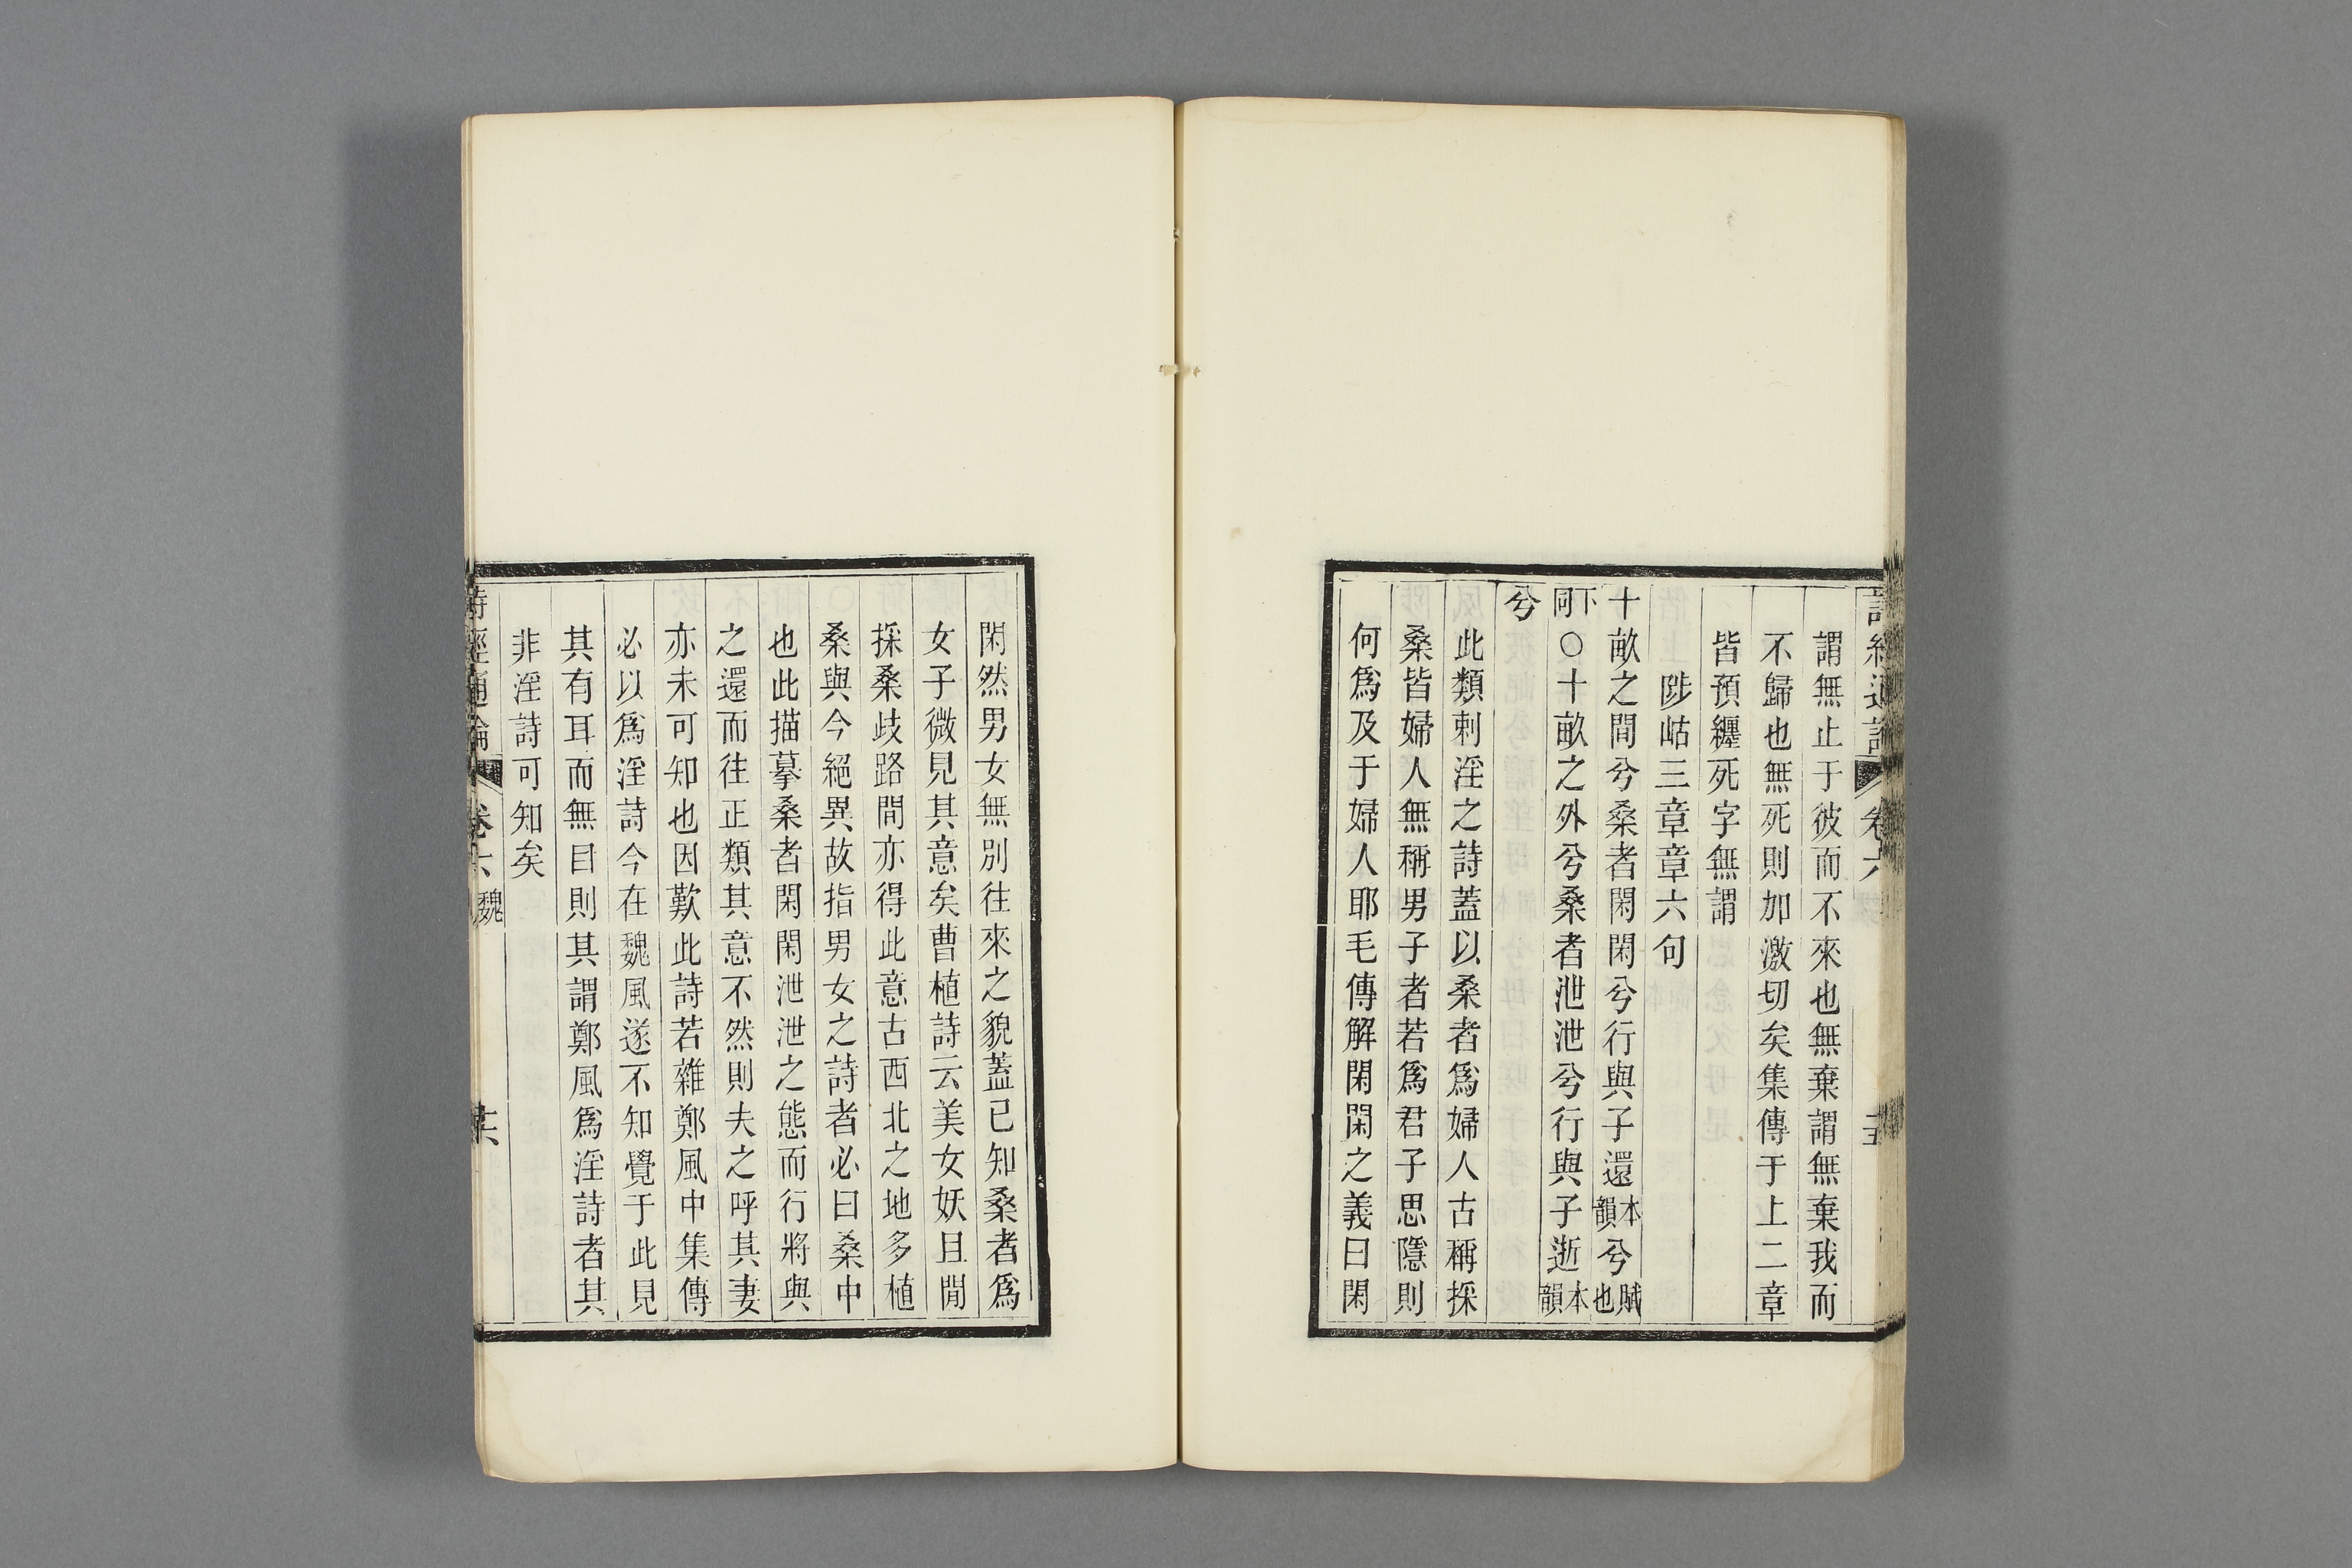 詩經通論 卷六
謂無止于彼而不來也無棄謂無棄我而
不歸也無死則加激切矣集傳于上二章
皆預纏死字無謂
陟岵三章章六句
十畝之間兮桑者閑閑兮行與子還本韻兮賦也
下同○十畝之外兮桑者泄泄兮行與子逝本韻
兮
此類刺淫之詩蓋以桑者爲婦人古稱採
桑皆婦人無稱男子者若爲君子思隱則
何爲及于婦人耶毛傳解閑閑之義曰閑
閑然男女無別往來之貌蓋已知桑者爲
女子微見其意矣曹植詩云美女妖且閒
採桑歧路間亦得此意古西北之地多植
桑與今絕異故指男女之詩者必曰桑中
也此描摹桑者閑閑泄泄之態而行將與
之還而往正類其意不然則夫之呼其妻
亦未可知也因歎此詩若雜鄭風中集傳
必以爲淫詩今在魏風遂不知覺于此見
其有耳而無目則其謂鄭風爲淫詩者其
非淫詩可知矣
詩經通論 卷六 魏